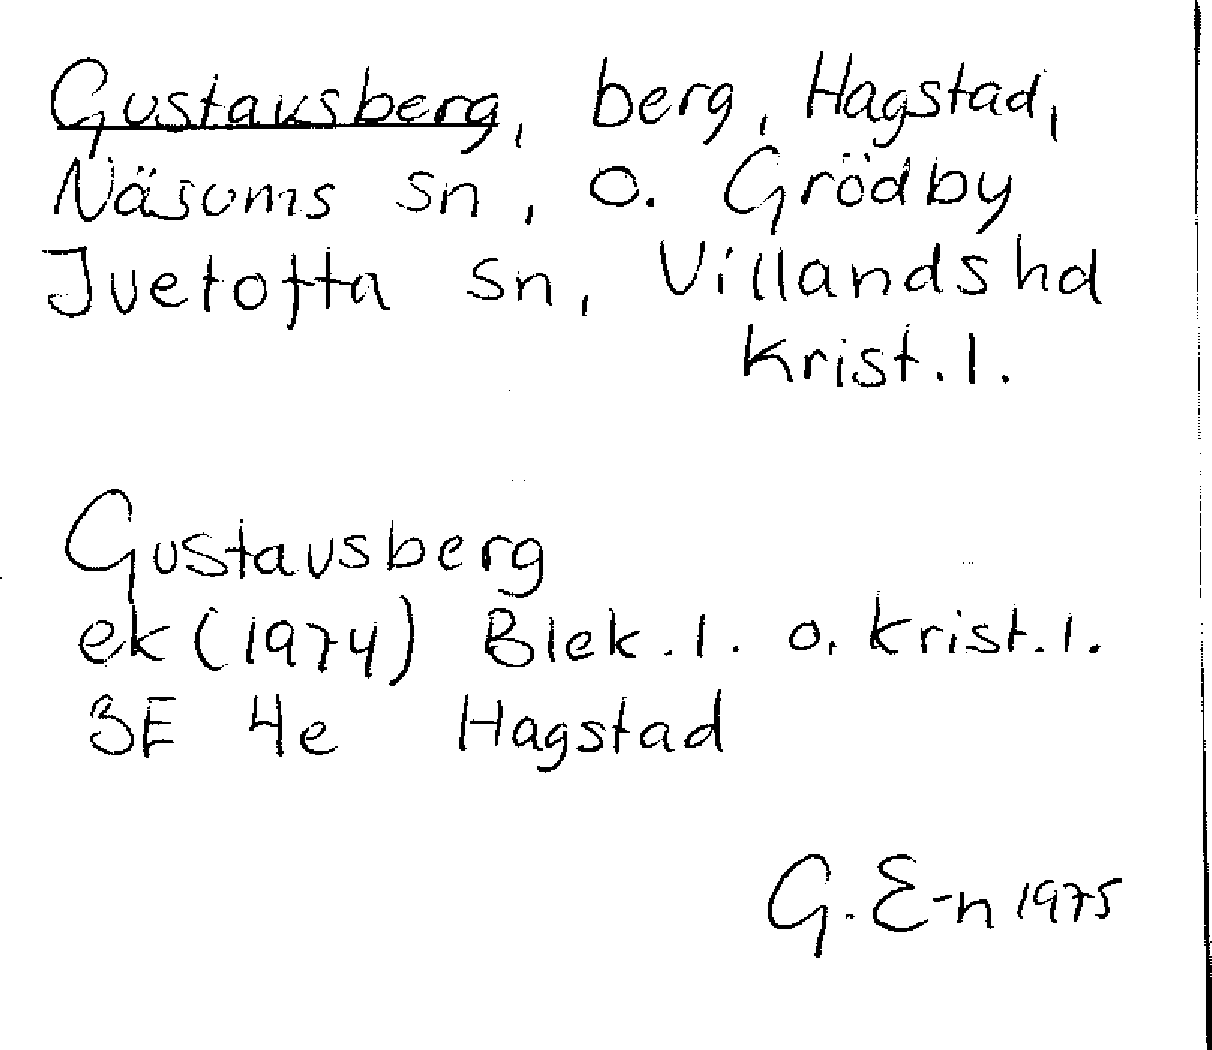 Gustavsberg, berg, Hagstad,
Näsums sn, o. Grödby
Ivetofta sn, Villands hd
Krist. l.
Gustavsberg
ek (1974) Blek. l. o. Krist. l.
3E 4e Hagstad
G. E-n 1975